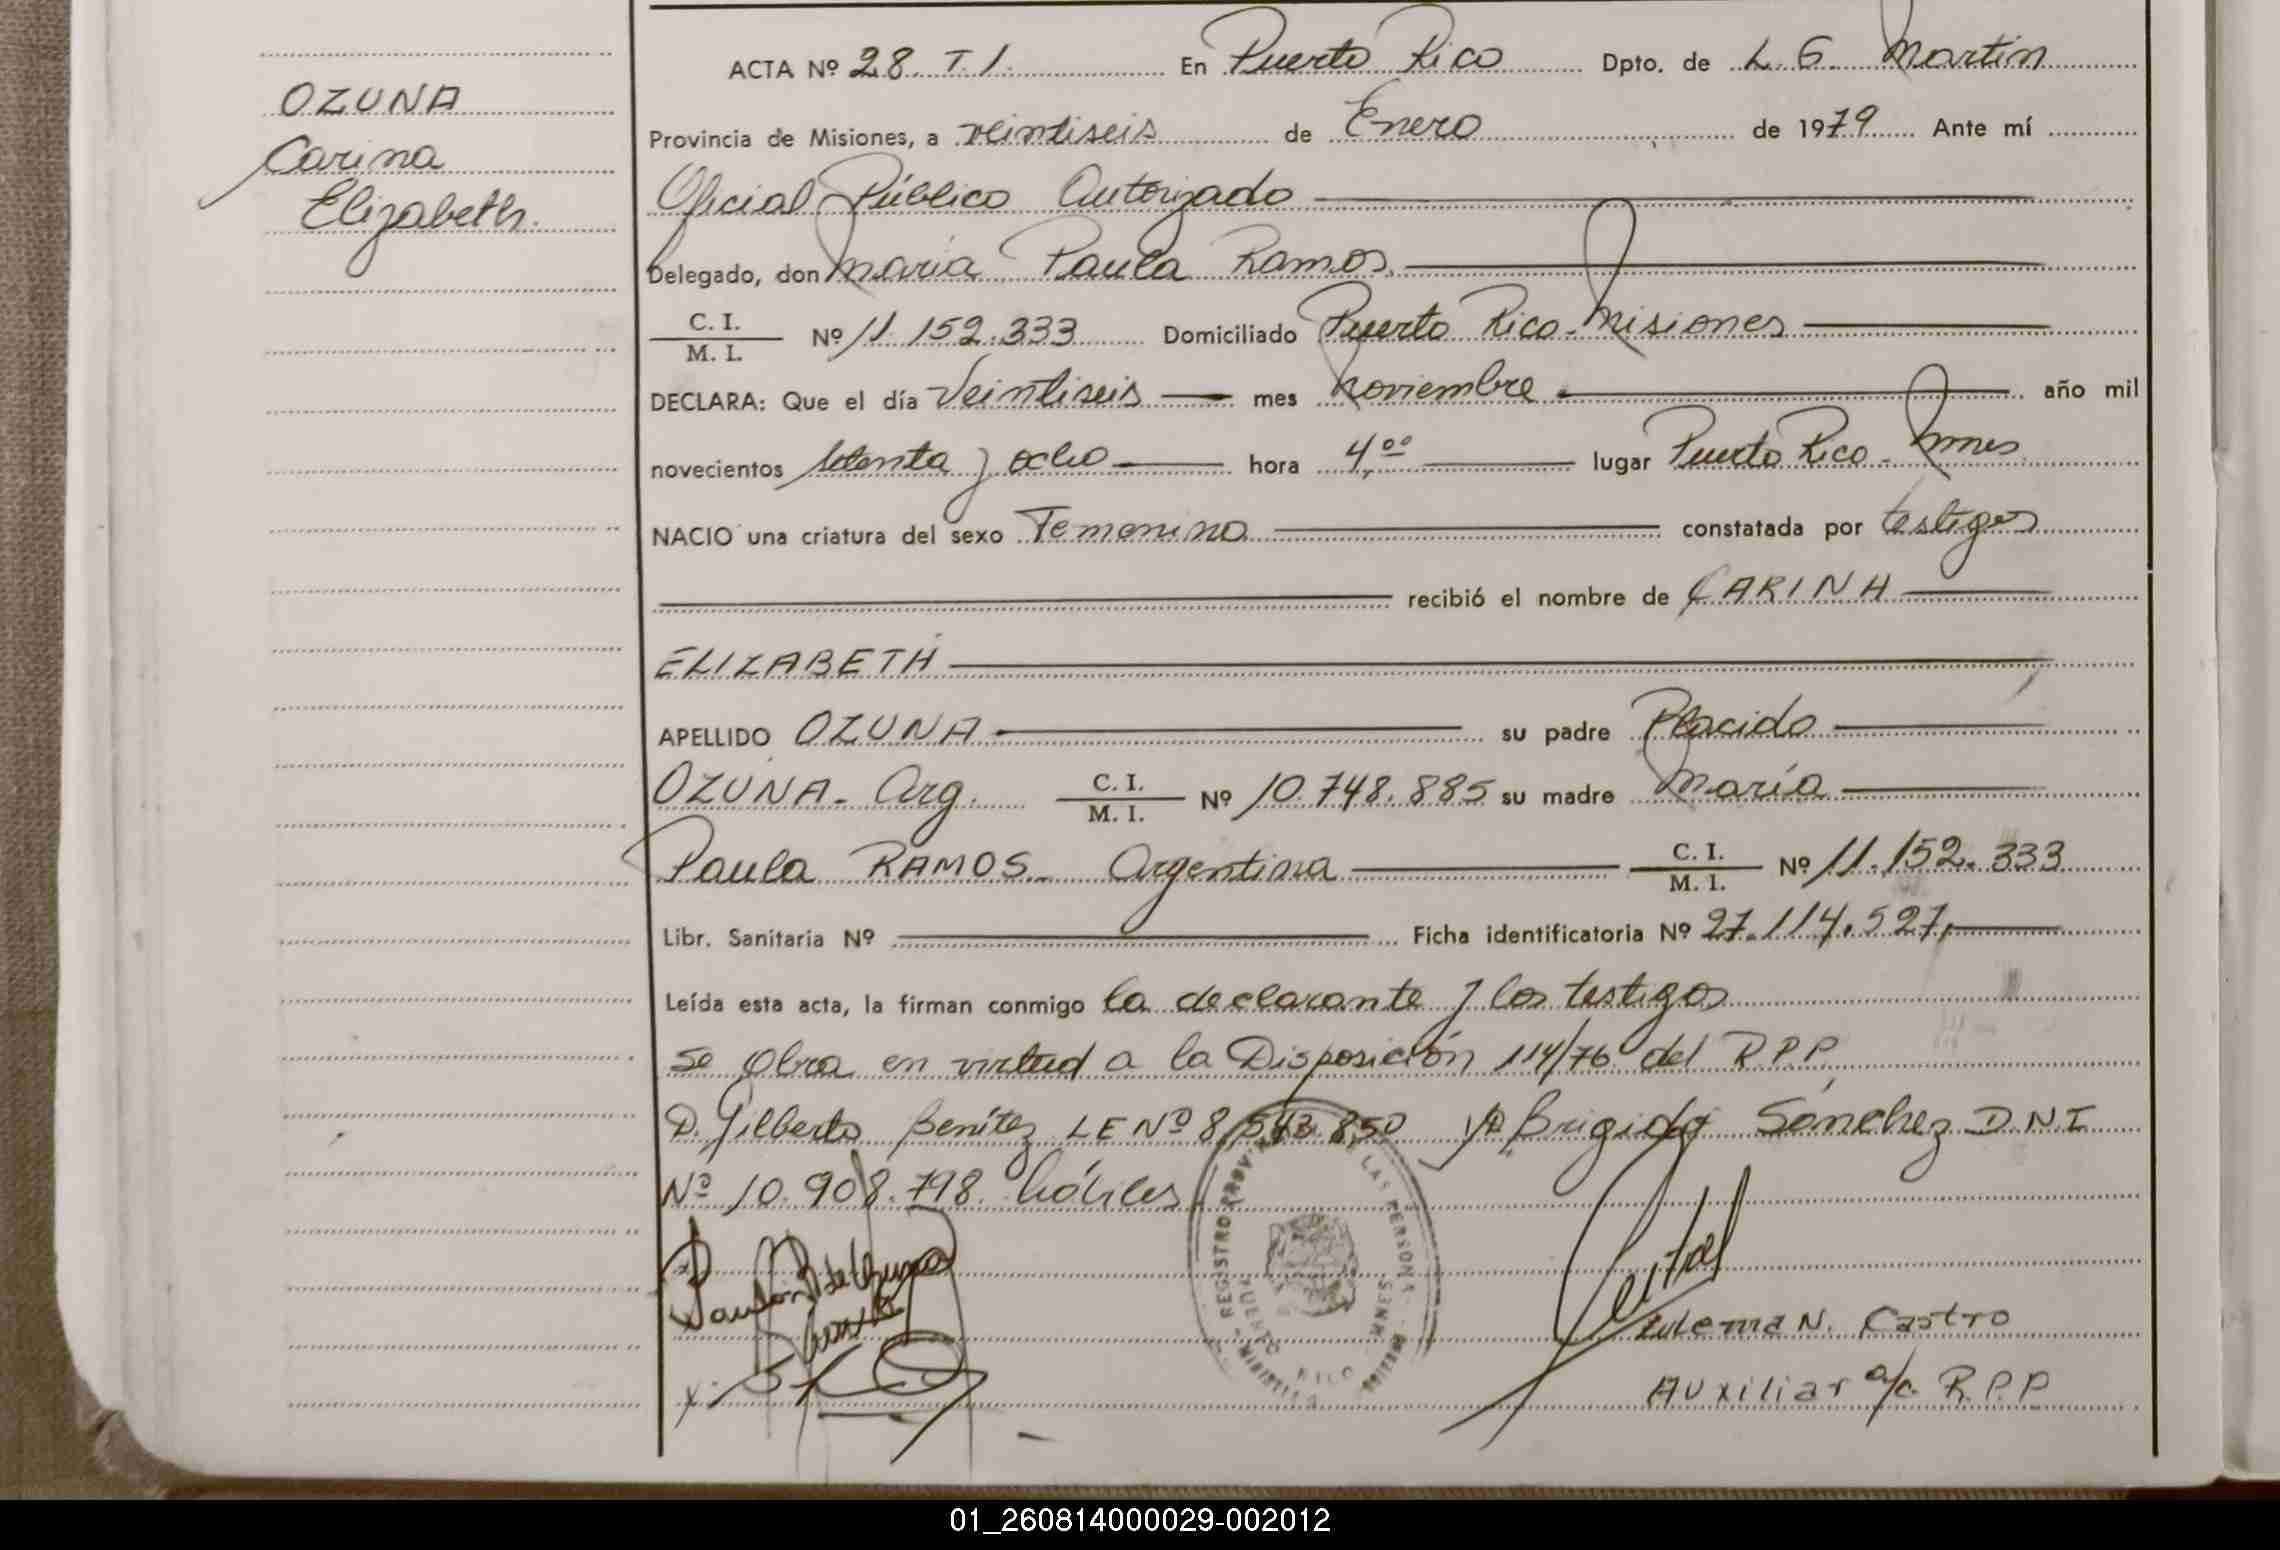 OZUNA
Carina
Elizabeth.
ACTA Nº 28. T 1. En Puerto Rico Dpto. de L. G. Martin
Provincia de Misiones, a veintiseis de Enero de 1979 Ante mí
Oficial Público Autorizado
Delegado, don María Paula Ramos.
C. I.
M. I.
Nº 11.152.333 Domiciliado Puerto Rico-Misiones
DECLARA: Que el día Veintiseis mes noviembre año mil
novecientos setenta y ocho hora 4,ºº lugar Puerto Rico - Mnes
NACIO una criatura del sexo Femenino constatada por testigos
recibió el nombre de CARINA
ELIZABETH
APELLIDO OZUNA su padre Placido
OZUNA- Arg. C. I.
M. I.
Nº 10.748.885 su madre María
Paula RAMOS- Argentina C. I.
M. I.
Nº 11.152.333
Libr. Sanitaria Nº Ficha identificatoria Nº 27.114.527,
Leída esta acta, la firman conmigo la declarante y los testigos
se obra en virtud a la Disposición 114/76 del R.P.P.
D. Gilberto Benítez LE Nº 8.543.850 y D. Brigida Sánchez D N I
Nº 10.908.798. hábiles.
REGISTRO PROV. DE LAS PERSONAS
PUERTO RICO
MNES.
Zulema N. Castro
Auxiliar a/c. R.P.P
01_260814000029-002012